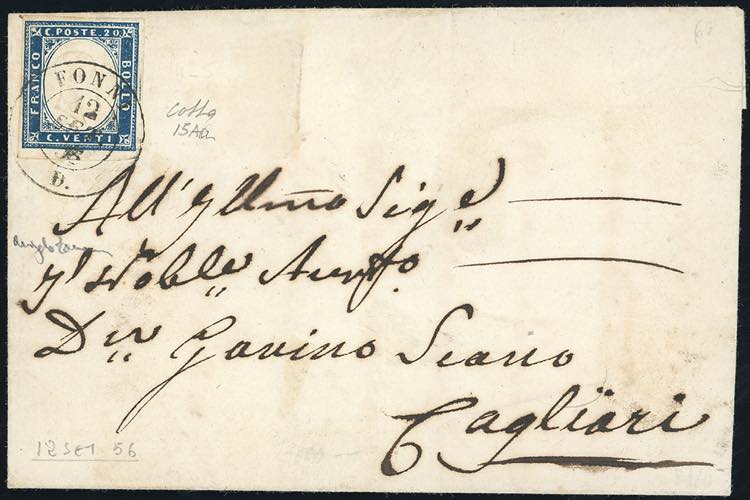 C. POSTE. 20
FRANCO
BOLLO
C. VENTI
FON
12
SET
D.
15Aa
All' Yllmo Sigr
Noble
Dn Gavino Scano
Cagliari
12 SET 56